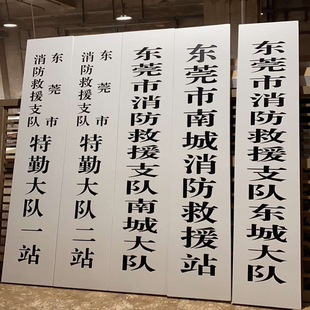 东莞市
消防救援支队
特勤大队一站
东莞市
消防救援支队
特勤大队二站
东莞市消防救援支队南城大队
东莞市南城消防救援站
东莞市消防救援支队东城大队